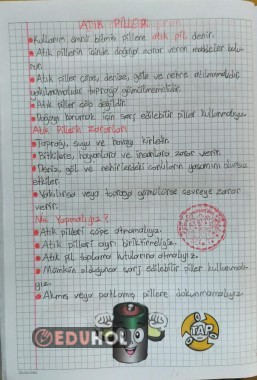 ATIK PİLLER
• Kullanım ömrü bitmiş pillere atık pil denir.
• Atık pillerin içinde doğaya zarar veren maddeler bulu-
nur.
• Atık piller çöpe, denize, göle ve nehre atılmamalıdır,
yakılmamalıdır toprağa gömülmemelidir.
• Atık piller çöp değildir.
• Doğayı korumak için şarj edilebilir piller kullanmalıyız.
Atık Pillerin Zararları
• Toprağı, suyu ve havayı kirletir.
• Bitkilere, hayvanlara ve insanlara zarar verir.
• Deniz, göl ve nehirlerdeki canlıların yaşamını olumsuz
etkiler.
• Yakılırsa veya toprağa gömülürse çevreye zarar
verir.
Ne Yapmalıyız?
• Atık pilleri çöpe atmamalıyız.
• Atık pilleri ayrı biriktirmeliyiz.
• Atık pil toplama kutularına atmalıyız.
• Mümkün olduğunca şarj edilebilir piller kullanmalı-
yız.
• Akmış veya patlamış pillere dokunmamalıyız.
EDUHOL
TAP